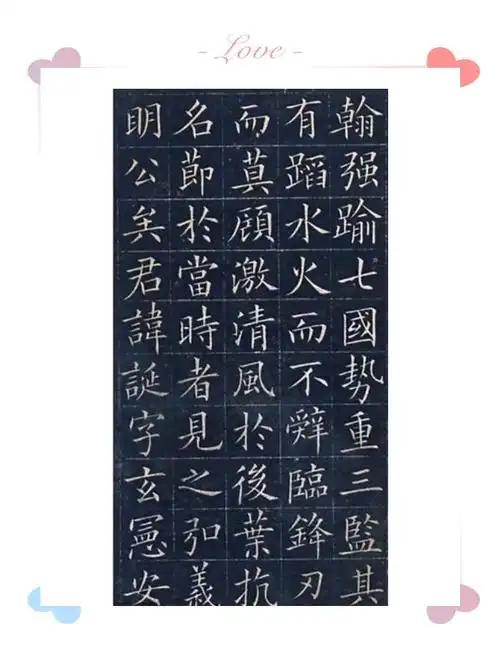 - Love -
翰强踰七國勢重三監其
有蹈水火而不辭臨鋒刃
而莫顧激清風於後葉抗
名莭於當時者見之弘義
眀公矣君諱誕字玄憲安